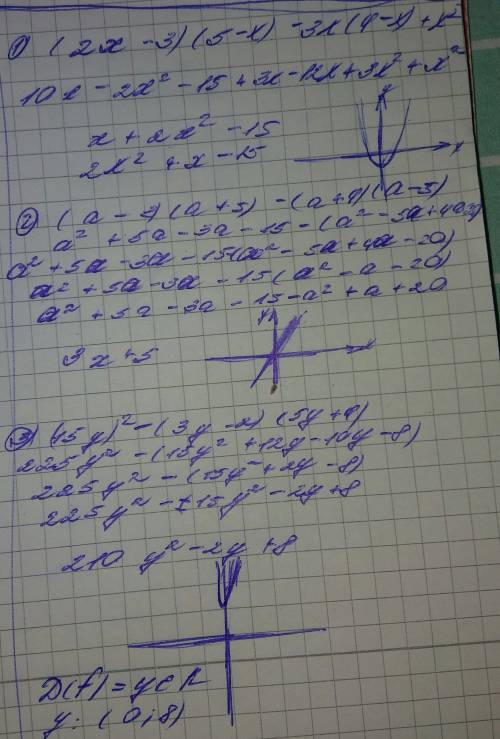 1) (2x - 3)(5 - x) - 3x(4 - x) + x²
10x - 2x² - 15 + 3x - 12x + 3x² + x²
x + 2x² - 15
2x² + x - 15
y
x
2) (a - 3)(a + 5) - (a + 4)(a - 5)
a² + 5a - 3a - 15 - (a² - 5a + 4a - 20)
a² + 5a - 3a - 15 (a² - 5a + 4a - 20)
a² + 5a - 3a - 15 (a² - a - 20)
a² + 5a - 3a - 15 - a² + a + 20
3x + 5
y
x
3) (15y)² - (3y - 2)(5y + 4)
225y² - (15y² + 12y - 10y - 8)
225y² - (15y² + 2y - 8)
225y² - 15y² - 2y + 8
210 y² - 2y + 8
D(f) = y ∈ R
y: (0; 8)